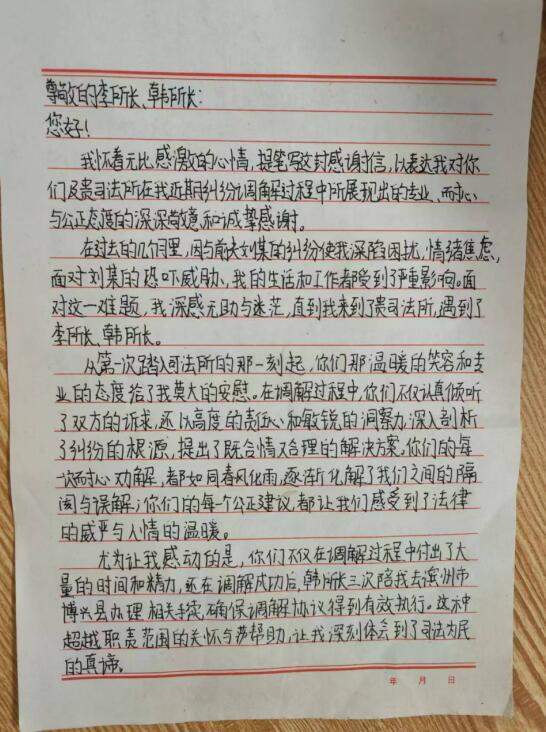 尊敬的李所长、韩所长：
您好！
我怀着无比感激的心情，提笔写这封感谢信，以表达我对你
们及贵司法所在我近期纠纷调解过程中所展现出的专业、耐心
与公正态度的深深敬意和诚挚感谢。
在过去的几个月里，因与前夫刘某的纠纷使我深陷困扰，情绪焦虑，
面对刘某的恐吓威胁、我的生活和工作都受到了严重影响。面
对这一难题，我深感无助与迷茫，直到我来到了贵司法所，遇到了
李所长、韩所长。
从第一次踏入司法所的那一刻起，你们那温暖的笑容和专
业的态度给了我莫大的安慰。在调解过程中，你们不仅认真倾听
了双方的诉求，还以高度的责任心和敏锐的洞察力，深入剖析
了纠纷的根源，提出了既合情又合理的解决方案。你们的每
一次耐心劝解，都如同春风化雨，逐渐化解了我们之间的隔
阂与误解；你们的每一个公正建议，都让我们感受到了法律
的威严与人情的温暖。
尤为让我感动的是，你们不仅在调解过程中付出了大
量的时间和精力，还在调解成功后，韩所长三次陪我去滨州市
博兴县办理相关手续，确保调解协议得到有效执行。这种
超越职责范围的关怀与帮助，让我深刻体会到了司法为民
的真谛。
年 月 日